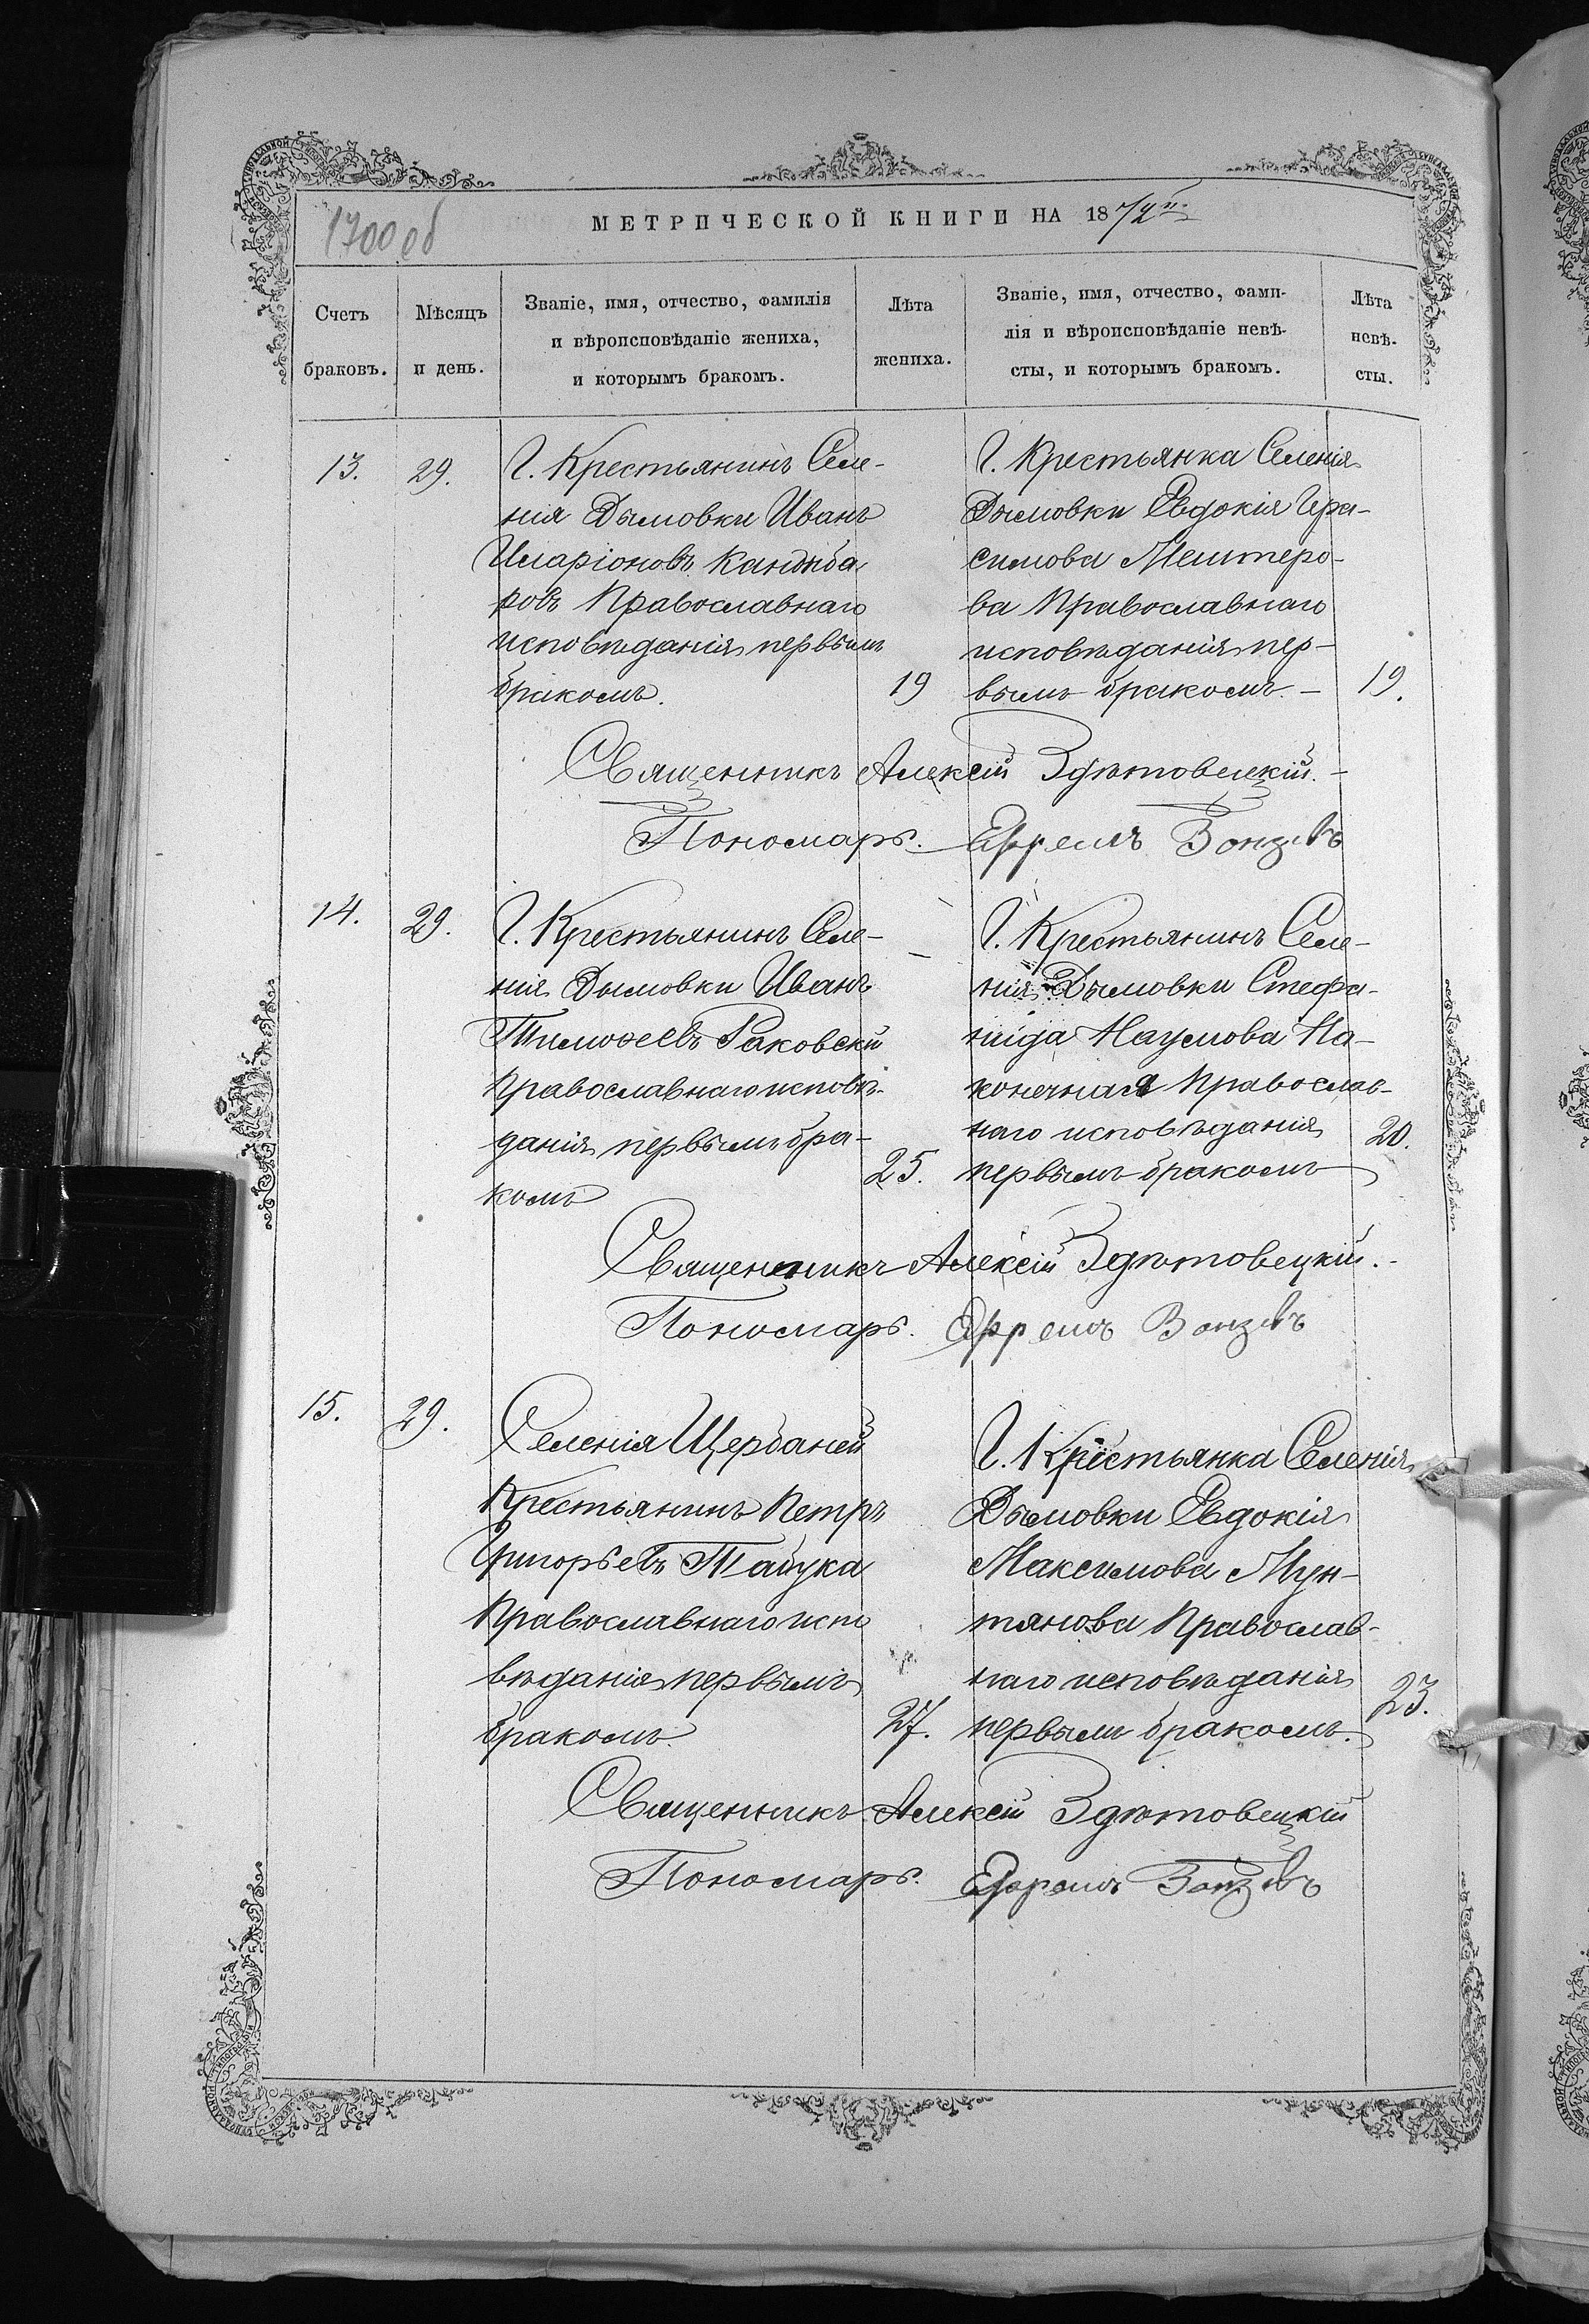 1700 об
МЕТРИЧЕСКОЙ КНИГИ НА 1872й.
Счетъ браковъ.
Мѣсяцъ и день.
Званіе, имя, отчество, фамилія
и вѣроисповѣданіе жениха,
и которымъ бракомъ.
Лѣта жениха.
Званіе, имя, отчество, фами-
лія и вѣроисповѣданіе невѣ-
сты, и которымъ бракомъ.
Лѣта невѣ-
сты.
13.
29.
Г. Крестьянинъ Селе-
нія Дымовки Иванъ
Иларіоновъ Кандиба
ровъ Православнаго
исповѣданія первымъ
бракомъ.
19
Г. Крестьянка Селенія
Дымовки Евдокія Гера-
симова Мештеро-
ва Православнаго
исповѣданія пер-
вымъ бракомъ. –
19.
Священникъ Алексій Здѣтовецкій. –
Пономарь. Ефремъ
14.
29.
Г. Крестьянинъ Селе-
нія Дымовки Иванъ
Тимоѳеевъ Раковски
Православнаго исповѣ-
данія первымъ бра-
комъ
25.
Г. Крестьянинъ Селе-
нія Дымовки Стефа-
нида Наумова На-
конечная Православ-
наго исповѣданія
первымъ бракомъ
20.
Священникъ Алексій Здѣтовецкій. –
Пономарь. Ефремъ
15.
29.
Селенія Щербаней
Крестьянинъ Петръ
Григорьевъ
Православнаго испо
вѣданія первымъ
бракомъ.
27.
Г. Крестьянка Селенія
Дымовки Евдокія
Максимова Мун-
тянова Православ-
наго исповѣданія
первымъ бракомъ.
23.
Священникъ Алексій Здѣтовецкій
Пономарь. Ефремъ